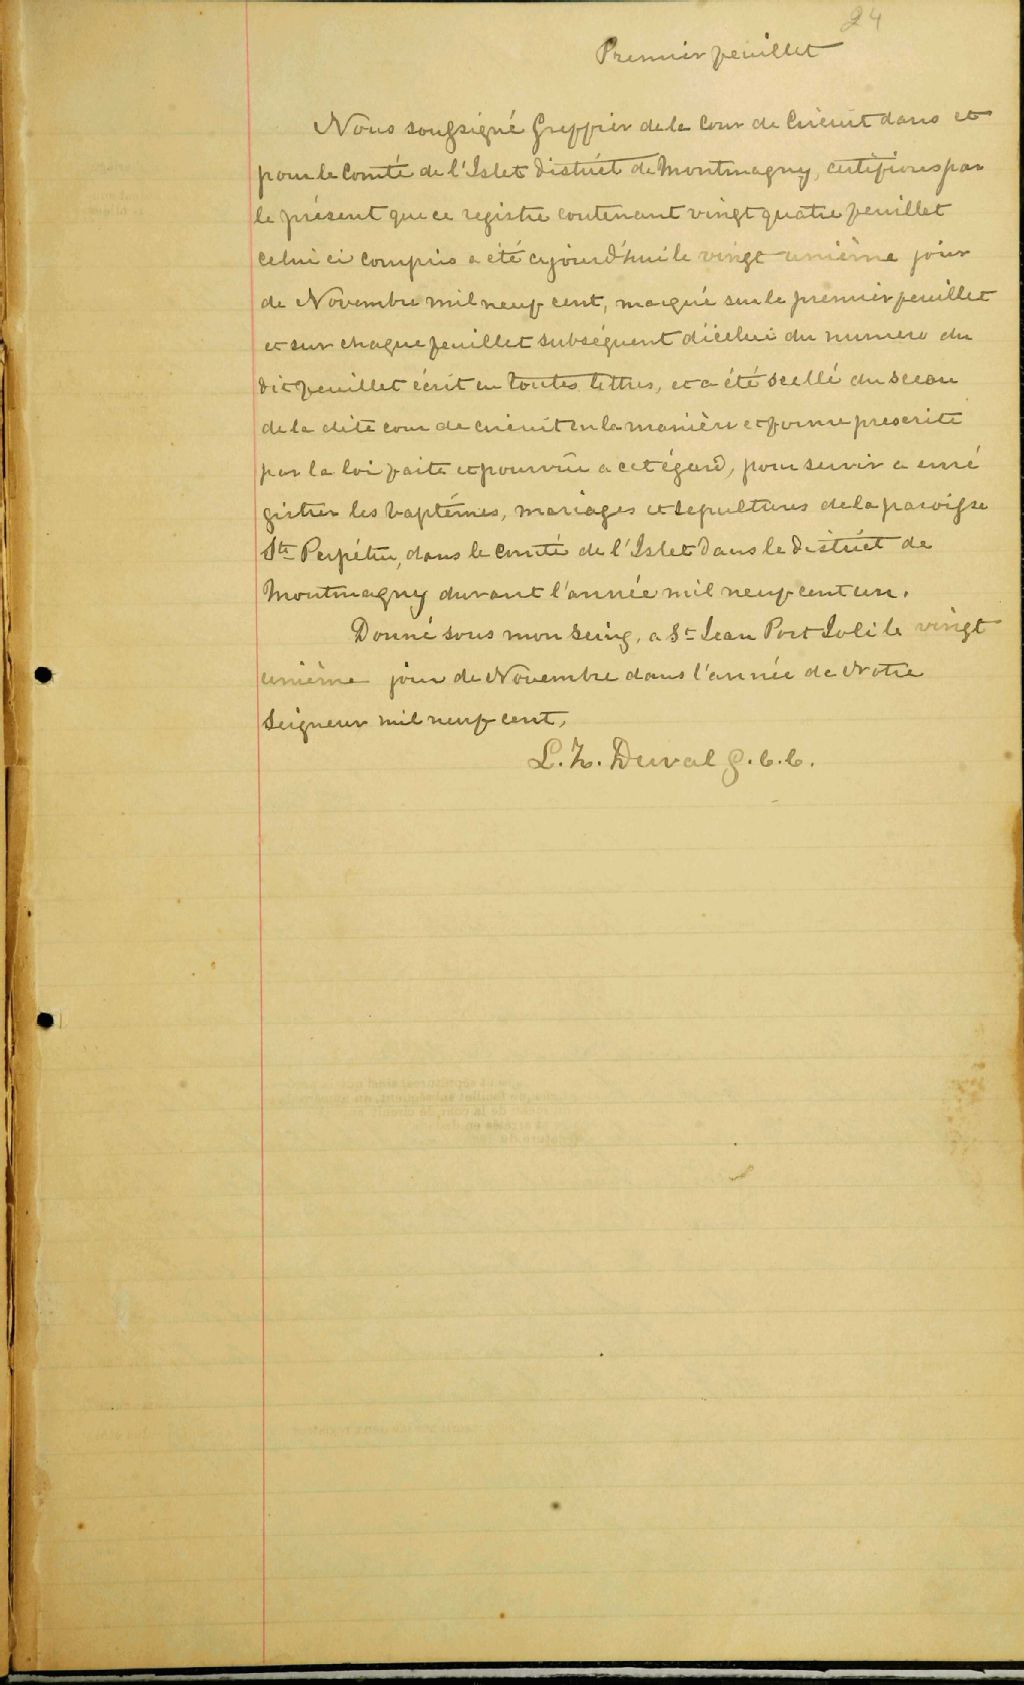 24
Premier feuillet
Nous soussigné Greffier de la Cour de Circuit dans et
pour le Comté de l'Islet District de Montmagny, certifions par
le présent que ce registre contenant vingt quatre feuillet
celui ci compris a été aujourd'hui le vingt unième jour
de Novembre mil neuf cent, marqué sur le premier feuillet
et sur chaque feuillet subséquent d'icelui du numero du
dit feuillet écrit en toutes lettres, et a été scellé du sceau
de la dite cour de circuit en la manière et forme prescrite
par la loi faite et pourvue a cet égard, pour servir a enré
gistrer les baptémes, mariages et sepultures de la paroisse
Ste Perpétue, dans le comté de l'Islet dans le district de
Montmagny durant l'année mil neuf cent un.
Donné sous mon seing, a St Jean Port Joli le vingt
unième jour de Novembre dans l'année de Notre
Seigneur mil neuf cent,
L. Z. Duval G.C.C.